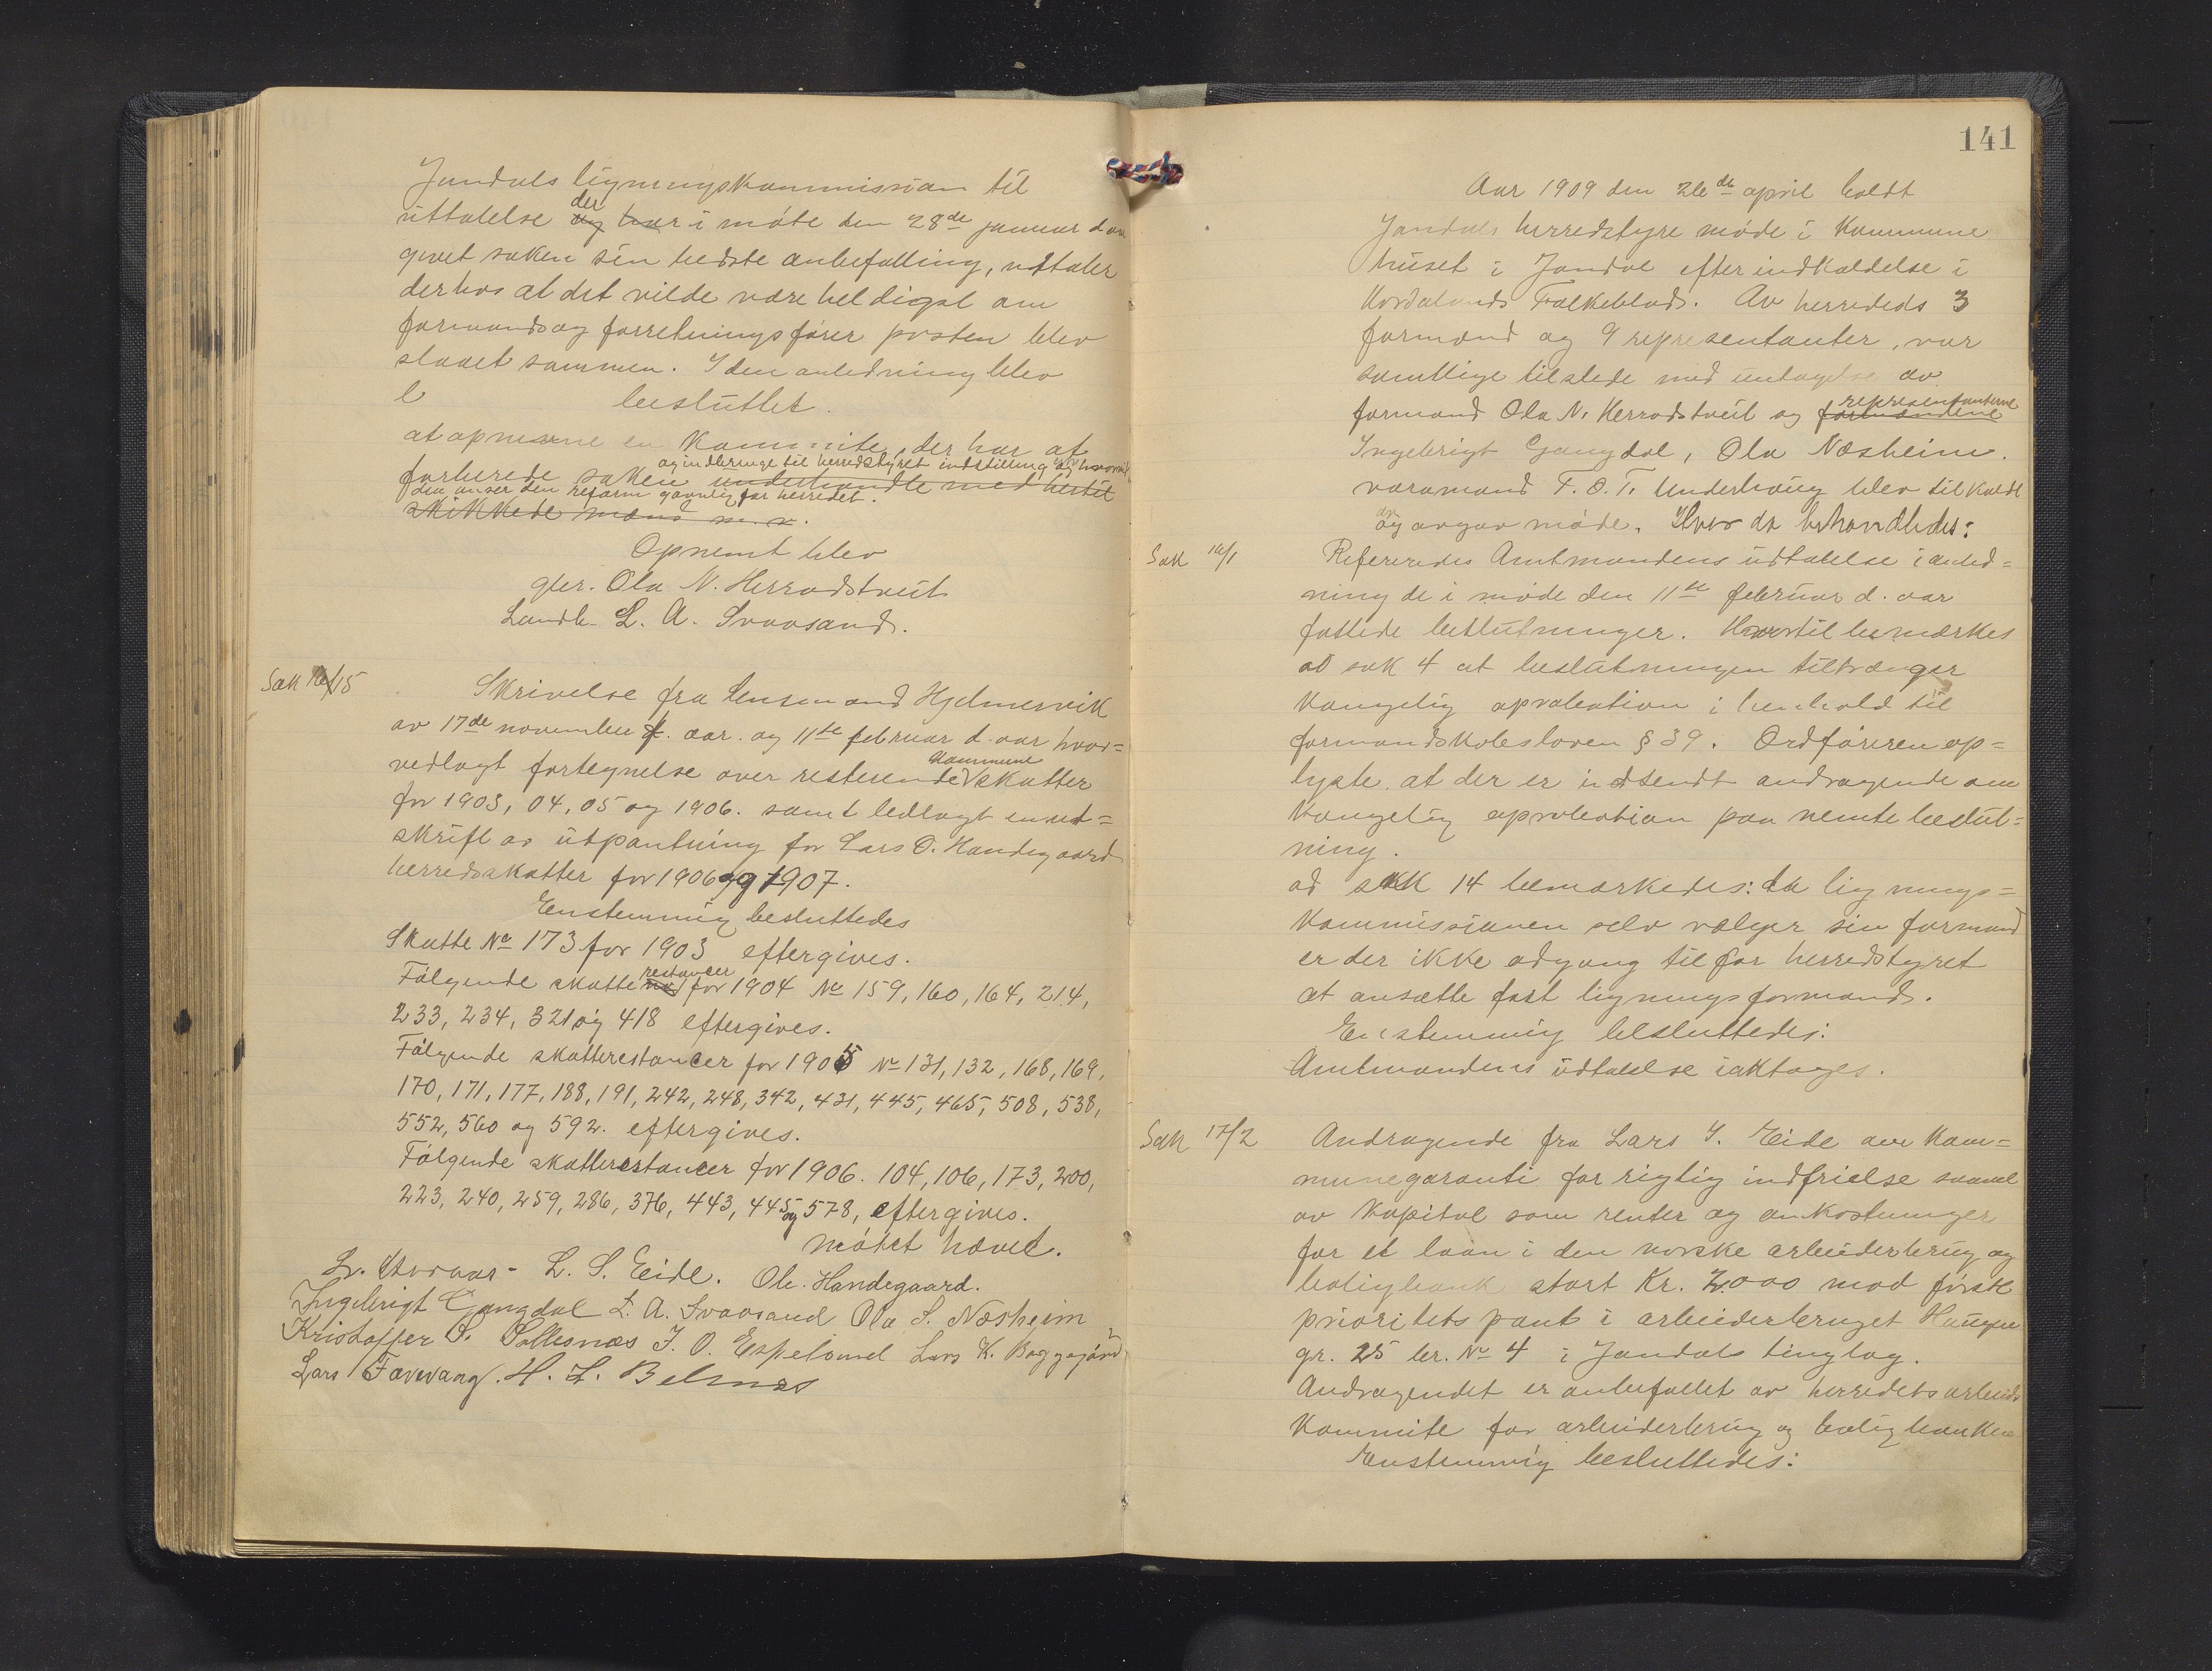 Jondals ligningskommission til
uttalelse der og har i møte den 28de januar d aar
givet saken sin bedste anbefalling, uttaler
derhos at det vilde være heldigst om
formands og forretningsfører posten blev
slaaet sammen. I den anledning blev
besluttet.
at opnevne en kommite, der har at
og indbringe til herredstyret indstilling og hvorvidt
forberede saken underhandle med hertil
den anser den reform gavnlig for herredet.
skikkede mænd m. v.
Opnemt blev
gbr. Ola N. Herradstveit
Landh. L. A. Svaasand.
Sak 16/15
Skrivelse fra lensmand Hjelmervik
av 17de november f. aar. og 11te februar d. aar hvor=
kommune
vedlagt fortegnelse over resterende skatter
for 1903, 04, 05 og 1906. samt bedlagt en ut=
skrift av utpantning for Lars O. Handegaard
herredsskatter for 1906 og 1907.
Enstemmig besluttedes
Skatte No 173 for 1903 eftergives.
restancer
Følgende skatte for 1904 No 159, 160, 164, 214,
233, 234, 321 og 418 eftergives.
Følgende skatterestancer for 1905 No 131, 132, 168, 169,
170, 171, 177, 188, 191, 242, 248, 342, 431, 445, 465, 508, 538,
552, 560 og 592. eftergives.
Følgende skatterestancer for 1906. 104, 106, 173, 200,
223, 240, 259, 286, 376, 443, 445 og 578, eftergives.
møtet hævet.
L. S. Eide. Ole Handegaard.
Ingebrigt Gangdal L. A. Svaasand Ola S. Næsheim
Kristoffer S. Sollesnæs J. O. Espeland Lars K.
Lars H. L. Belsnæs
141
Aar 1909 den 26de april holdt
Jondals herredstyre møde i Kommune
huset i Jondal efter indkaldelse i
Hordalands Folkeblad. Av herredets 3
formænd og 9 representanter, var
samtlige tilstede med undtagelse av
representanterne
formand Ola N. Herradstveit og formændene
Ingebrigt Gangdal, Ola Næsheim.
varamand T. O. T. Underhaug blev tilkaldt
og avgav møde. Hvor da behandledes:
Sak 16/1
Refereredes Amtmandens udtalelse i anled=
ning de i møde den 11te februar d. aar
fattede beslutninger. Hvortil bemærkes
ad sak 4 at beslutningen tiltrænger
Kongelig aprobation i henhold til
formandskabsloven § 39. Ordføreren op=
lyste at der er indsendt andragende om
Kongelig aprobation paa nemte beslut=
ning.
ad sak 14 bemærkedes: da lignings=
kommissionen selv vælger sin formand
er der ikke adgang til for herredstyret
at ansætte fast ligningsformand.
Enstemmig besluttedes:
Amtmandens udtalelse iakttages.
Sak 17/2
Andragende fra Lars S. Eide om kom=
munegaranti for rigtig indfrielse saavel
av kapital som renter og omkostninger
for et laan i den norske arbeiderbrug og
boligbank stort Kr. 2000 mod første
prioritets pant i arbeiderbruget Haugen
gr. 25 br. No 4 i Jondals tinglag.
Andragendet er anbefallet av herredets arbeids
kommite for arbeiderbrug og boligbanken
Enstemmig besluttedes: